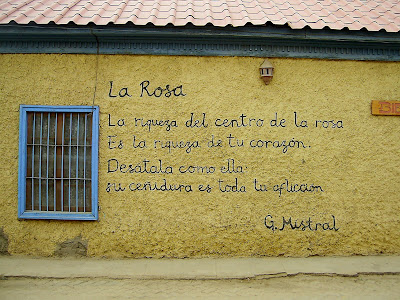 La Rosa
La riqueza del centro de la rosa
Es la riqueza de tu corazón.
Desátala como ella:
su ceñidura es toda la aflucción
G. Mistral